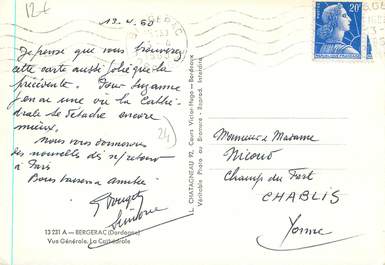 12€
13.4.60
BERGERAC
Je pense que vous trouverez
cette carte aussi jolie que la
précédente. Pour Suzanne
j'en ai une où la Cathé-
drale se détache encore
mieux.
24
Nous vous donnerons
des nouvelles dès n/ retour
à Paris
Bons baisers amitiés
Simone
13 231 A — BERGERAC (Dordogne)
Vue Générale. La Cathédrale
L. CHATAGNEAU 92, Cours Victor-Hugo — Bordeaux
Véritable Photo au Bromure - Reprod. Interdite
POSTES
20F
REPUBLIQUE FRANÇAISE
Monsieur & Madame
Nicoud
Champ du Fort
CHABLIS
Yonne